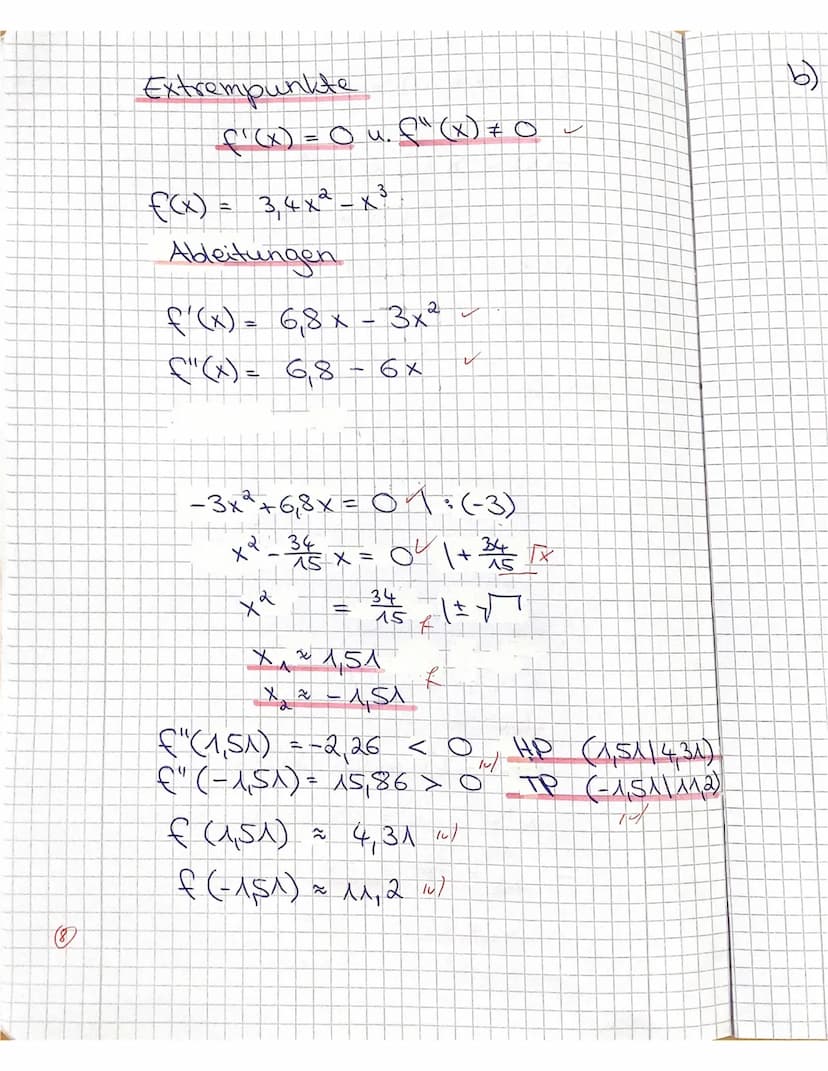 Extrempunkte
b)
f'(x) = 0 u. f''(x) ≠ 0 ✓
f(x) = 3,4x² - x³
Ableitungen
f'(x) = 6,8x - 3x² ✓
f''(x) = 6,8 - 6x ✓
-3x² + 6,8x = 0 ✓ | : (-3)
x² - 34/15 x = 0 ✓ | + 34/15 √x
x² = 34/15 f | ± √
x₁ ≈ 1,51
x₂ ≈ - 1,51 f
f''(1,51) = -2,26 < 0 (✓) HP (1,51|4,31)
f''(-1,51) = 15,86 > 0 TP (-1,51|11,2) (✓)
f (1,51) ≈ 4,31 (✓)
f (-1,51) ≈ 11,2 (✓)
8